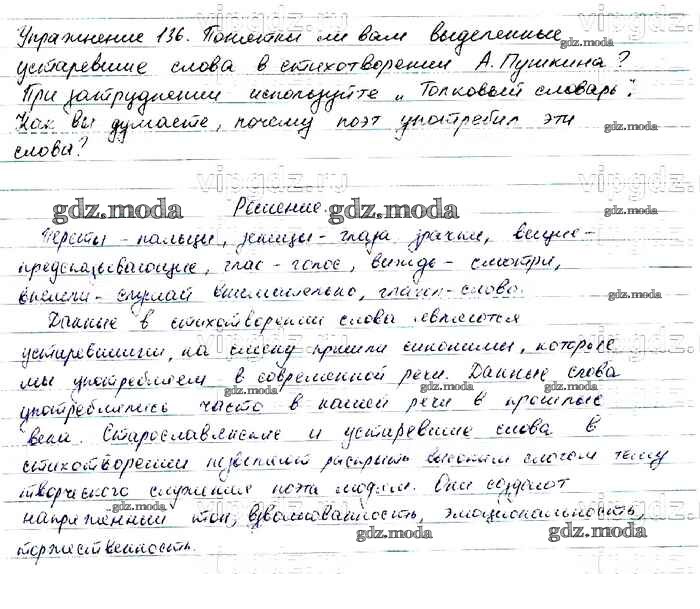 vipgdz.ru
Упражнение 136. Понятны ли вам выделенные
gdz.moda
устаревшие слова в стихотворении А. Пушкина?
При затруднении используйте „Толковый словарь".
Как вы думаете, почему поэт употребил эти
gdz.moda
слова?
vipgdz.ru vipgdz.ru
gdz.moda Решение. gdz.moda
Персты - пальцы, зеницы - глаза, зрачки, вещие -
предсказывающие, глас - голос, виждь - смотри,
внемли - слушай внимательно, глагол - слово.
gdz.moda
Данные в стихотворении слова являются
устаревшими, на смену пришли синонимы, которые
gdz.moda
мы употребляем в современной речи. Данные слова
gdz.moda gdz.moda
употреблялись часто в нашей речи в прошлые
века. Старославянские и устаревшие слова в
gdz.moda
стихотворении позволяют раскрыть высоким слогом тему
творческого служения поэта людям. Они создают
gdz.moda gdz.moda
напряженный тон, взволнованность, эмоциональность,
gdz.moda gdz.moda
торжественность.
vipgdz.ru vipgdz.ru